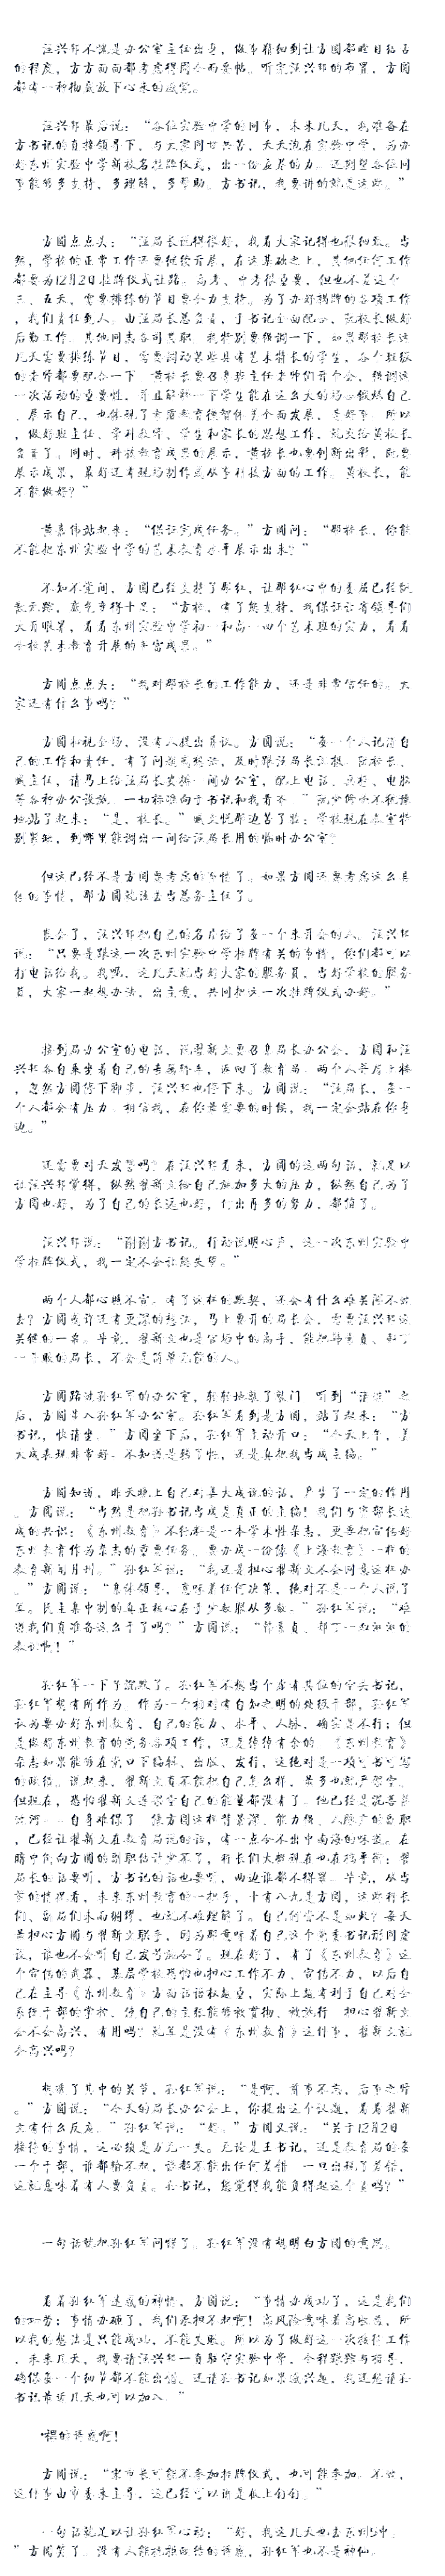 汪兴邦不愧是办公室主任出身，做事精细到让方圆都瞠目结舌
的程度，方方面面都考虑得周全而妥帖。听完汪兴邦的布置，方圆
都有一种彻底放下心来的感觉。
汪兴邦最后说：“各位实验中学的同事，未来几天，我准备在
方书记的直接领导下，与大家同甘共苦，天天泡在实验中学，为办
好东州实验中学新校名挂牌仪式，出一份应尽的力。还期望各位同
事能够多支持，多理解，多帮助。方书记，我要讲的就是这些。”
方圆点点头：“汪局长说得很好，我看大家记得也很细致。当
然，学校的正常工作还要继续开展，在这基础之上，其他任何工作
都要为12月2日挂牌仪式让路。高考、中考很重要，但也不差这个
三、五天，需要排练的节目要全力支持。为了办好揭牌的各项工作
，我们责任到人：由汪局长总负责，于书记全面配合，阮校长做好
后勤工作。其他同志各司其职。我特别要强调一下，如果那校长这
几天需要排练节目，需要调动某些具有艺术特长的学生，各个班级
的老师都要配合一下。黄校长要召集班主任老师们开个会，强调这
一次活动的重要性，并且解释一下学生能在这么大的场合锻炼自己
、展示自己，也体现了素质教育德智体美全面发展，是好事。所以
，做好班主任、学科教师、学生和家长的思想工作，就交给黄校长
负责了。同时，科技教育成果的展示，黄校长也要创新出彩，既要
展示成果，最好还有现场制作或从事科技方面的工作。黄校长，能
不能做好？”
黄嘉伟站起来：“保证完成任务。”方圆问：“那校长，你能
不能把东州实验中学的艺术教育水平展示出来？”
不知不觉间，方圆已经支持了那红，让那红心中的委屈已经飘
散无踪，底气变得十足：“方校，有了您支持，我保证让省领导们
大有收获，看看东州实验中学初一和高一四个艺术班的实力，看看
全校艺术教育开展的丰富成果。”
方圆点点头：“我对那校长的工作能力，还是非常信任的。大
家还有什么事吗？”
方圆扫视全场，没有人提出异议。方圆说：“每一个人记清自
己的工作和责任，有了问题或想法，及时跟汪局长汇报。阮校长、
臧主任，请马上给汪局长安排一间办公室，配上电话、桌椅、电脑
等各种办公设施，一切标准向于书记和我看齐。”
地站了起来：“是，校长。”臧文悦那边苦了脸：学校现在教室特
别紧缺，到哪里能调出一间给汪局长用的临时办公室？
但这已经不是方圆要考虑的事情了。如果方圆还要考虑这么具
体的事情，那方圆就该去当总务主任了。
散会了，汪兴邦把自己的名片给了每一个来开会的人。汪兴邦
说：“只要是跟这一次东州实验中学挂牌有关的事情，你们都可以
打电话给我。我呢，这几天就当好大家的服务员，当好学校的服务
员，大家一起想办法，出主意，共同把这一次挂牌仪式办好。”
接到局办公室的电话，说翟新文要召集局长办公会，方圆和汪
兴邦各自乘坐着自己的专属轿车，返回了教育局。两个人并肩上楼
，忽然方圆停下脚步，汪兴邦也停下来。方圆说：“汪局长，每一
个人都会有压力。相信我，在你最需要的时候，我一定会站在你身
边。”
还需要对天发誓吗？在汪兴邦看来，方圆的这两句话，就足以
让汪兴邦觉得，纵然翟新文给自己施加多大的压力，纵然自己为了
方圆也好，为了自己的长远也好，付出再多的努力，都值了。
汪兴邦说：“谢谢方书记。行动说明心声，这一次东州实验中
学挂牌仪式，我一定不会让您失望。”
两个人都心照不宣。有了这样的默契，还会有什么难关闯不过
去？方圆或许还有更深的想法，马上要开的局长会，需要汪兴邦这
关键的一票。毕竟，翟新文也是官场中的高手，能把韩素贞、郝丁
一干服的局长，不会是简单无能的人。
方圆路过孙红军的办公室，轻轻地敲了敲门。听到“请进”之
后，方圆进入孙红军办公室。孙红军看到是方圆，站了起来：“方
书记，快请坐。”方圆坐下后，孙红军主动开口：“今天上午，姜
大成表现非常好。不知道是转了性，还是真把我当成主编。”
方圆知道，昨天晚上自己对姜大成说的话，产生了一定的作用
。方圆说：“当然是把孙书记当成是真正的主编！我们与宋部长达
成的共识：《东州教育》不仅仅是一本学术性杂志，更要把宣传好
东州教育作为杂志的重要任务。要办成一份像《上海教育》一样的
教育新闻月刊。”孙红军说：“我还是担心翟新文不会同意这样办
。”方圆说：“身为领导，意味着任何决策，绝对不是一个人说了
算。民主集中制的真正核心在于少数服从多数。”孙红军说：“难
道我们真准备这么干了吗？”方圆说：“韩素贞、郝丁一
教训啊！”
孙红军一下子沉默了。孙红军不想当个虚有其位的空头书记，
孙红军想有所作为。作为一个相对有自知之明的处级干部，孙红军
认为要办好东州教育，自己的能力、水平、人脉，确实是不行；但
是做好东州教育的党务各项工作，还是绰绰有余的。《东州教育》
杂志如果能够在党口下编辑、出版、发行，这绝对是一项可书可写
的政绩。说起来，翟新文看不能把自己怎么样，最多也就是
但现在，恐怕翟新文连
自身难保了。像方圆这样背景深、能力强、人脉广的副职
，已经让翟新文在教育局说的话，有一点令不出中南海的味道。在
暗中倒向方圆的副职估计少不了，科长们大概现在也在摇摆：翟
局长的话要听，方书记的话也要听，两边谁都不得罪。毕竟，从当
前的情况看，未来东州教育的一把手，十有八九是方圆，这些科长
们、副局们未雨绸缪，也就不难理解了。自己何尝不是如此？每天
最担心方圆与翟新文联手，因为那意味着自己这个党委书记形同虚
设，谁也不会听自己发号施令了。现在好了，有了《东州教育》这
个宣传的武器，基层学校再怕也担心工作不力、宣传不力，以后自
己在主导《东州教育》方面话语权越重，实际上越有利于自己对全
系统干部的掌控，使自己的主张能够被贯彻、被执行。担心翟新文
会不会高兴，有用吗？就算是没有《东州教育》这件事，翟新文就
会高兴吗？
想清了其中的关节，孙红军说：“是啊，前事不忘，后事之师
。”方圆说：“今天的局长办公会上，你提出这个议题，看看翟新
文有什么反应。”孙红军说：“好。”方圆又说：“关于12月2日
接待的事情，这必须是万无一失。无论是王书记，还是教育局的每
一个干部，谁都输不起，谁都不能出任何差错。一旦出现了差错，
这就意味着有人要负责。孙书记，您觉得我能负得起这个责吗？”
一句话就把孙红军问愣了。孙红军没有想明白方圆的意思。
看着孙红军迷惑的神情，方圆说：“事情办成功了，这是我们
的功劳；事情办砸了，我们承担不起啊！高风险意味着高收益，所
以我的想法是只能成功，不能失败。所以为了做好这一次接待工作
，未来几天，我要请汪兴邦一直驻守实验中学，全程跟踪与指导，
确保每一个细节都不能出错。还请孙书记如果感兴趣，我还想请孙
书记最近几天也可以加入。”
裸的诱惑啊！
方圆说：“宋市长可能不参加挂牌仪式，也可能参加。不过，
这件事由市委来主导，这已经可以说是板上钉钉。”
一句话就足以让孙红军心动：“好，我这几天也去东州5中。
”方圆笑了。没有人能抗拒政绩的诱惑，孙红军也不是神仙。